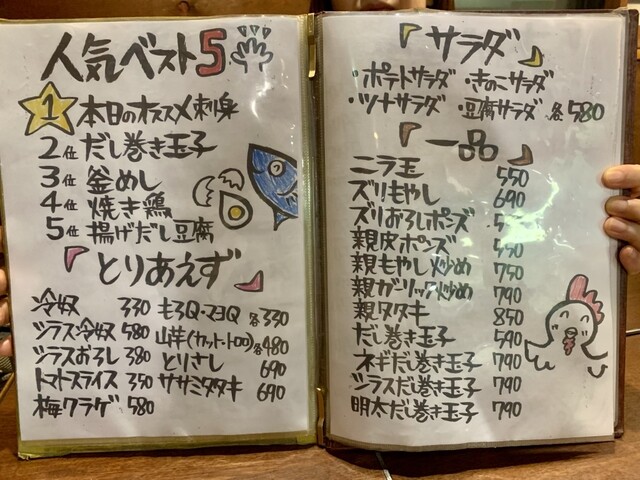 人気ベスト5
1 本日のオススメ刺身
2位 だし巻き玉子
3位 釜めし
4位 焼き鶏
5位 揚げだし豆腐
『とりあえず』
冷奴 330
シラス冷奴 580
シラスおろし 380
トマトスライス 350
梅クラゲ 580
もろQ・マヨQ 各330
山芋(カット・トロロ) 各480
とりさし 690
ササミタタキ 690
『サラダ』
・ポテトサラダ ・きのこサラダ
・ツナサラダ ・豆腐サラダ 各580
『一品』
ニラ玉 550
ズリもやし 690
ズリおろしポーズ
親皮ポーズ 550
親もやし炒め 750
親ガーリック炒め 790
親タタキ 850
だし巻き玉子 590
ネギだし巻き玉子 790
シラスだし巻き玉子 790
明太だし巻き玉子 790